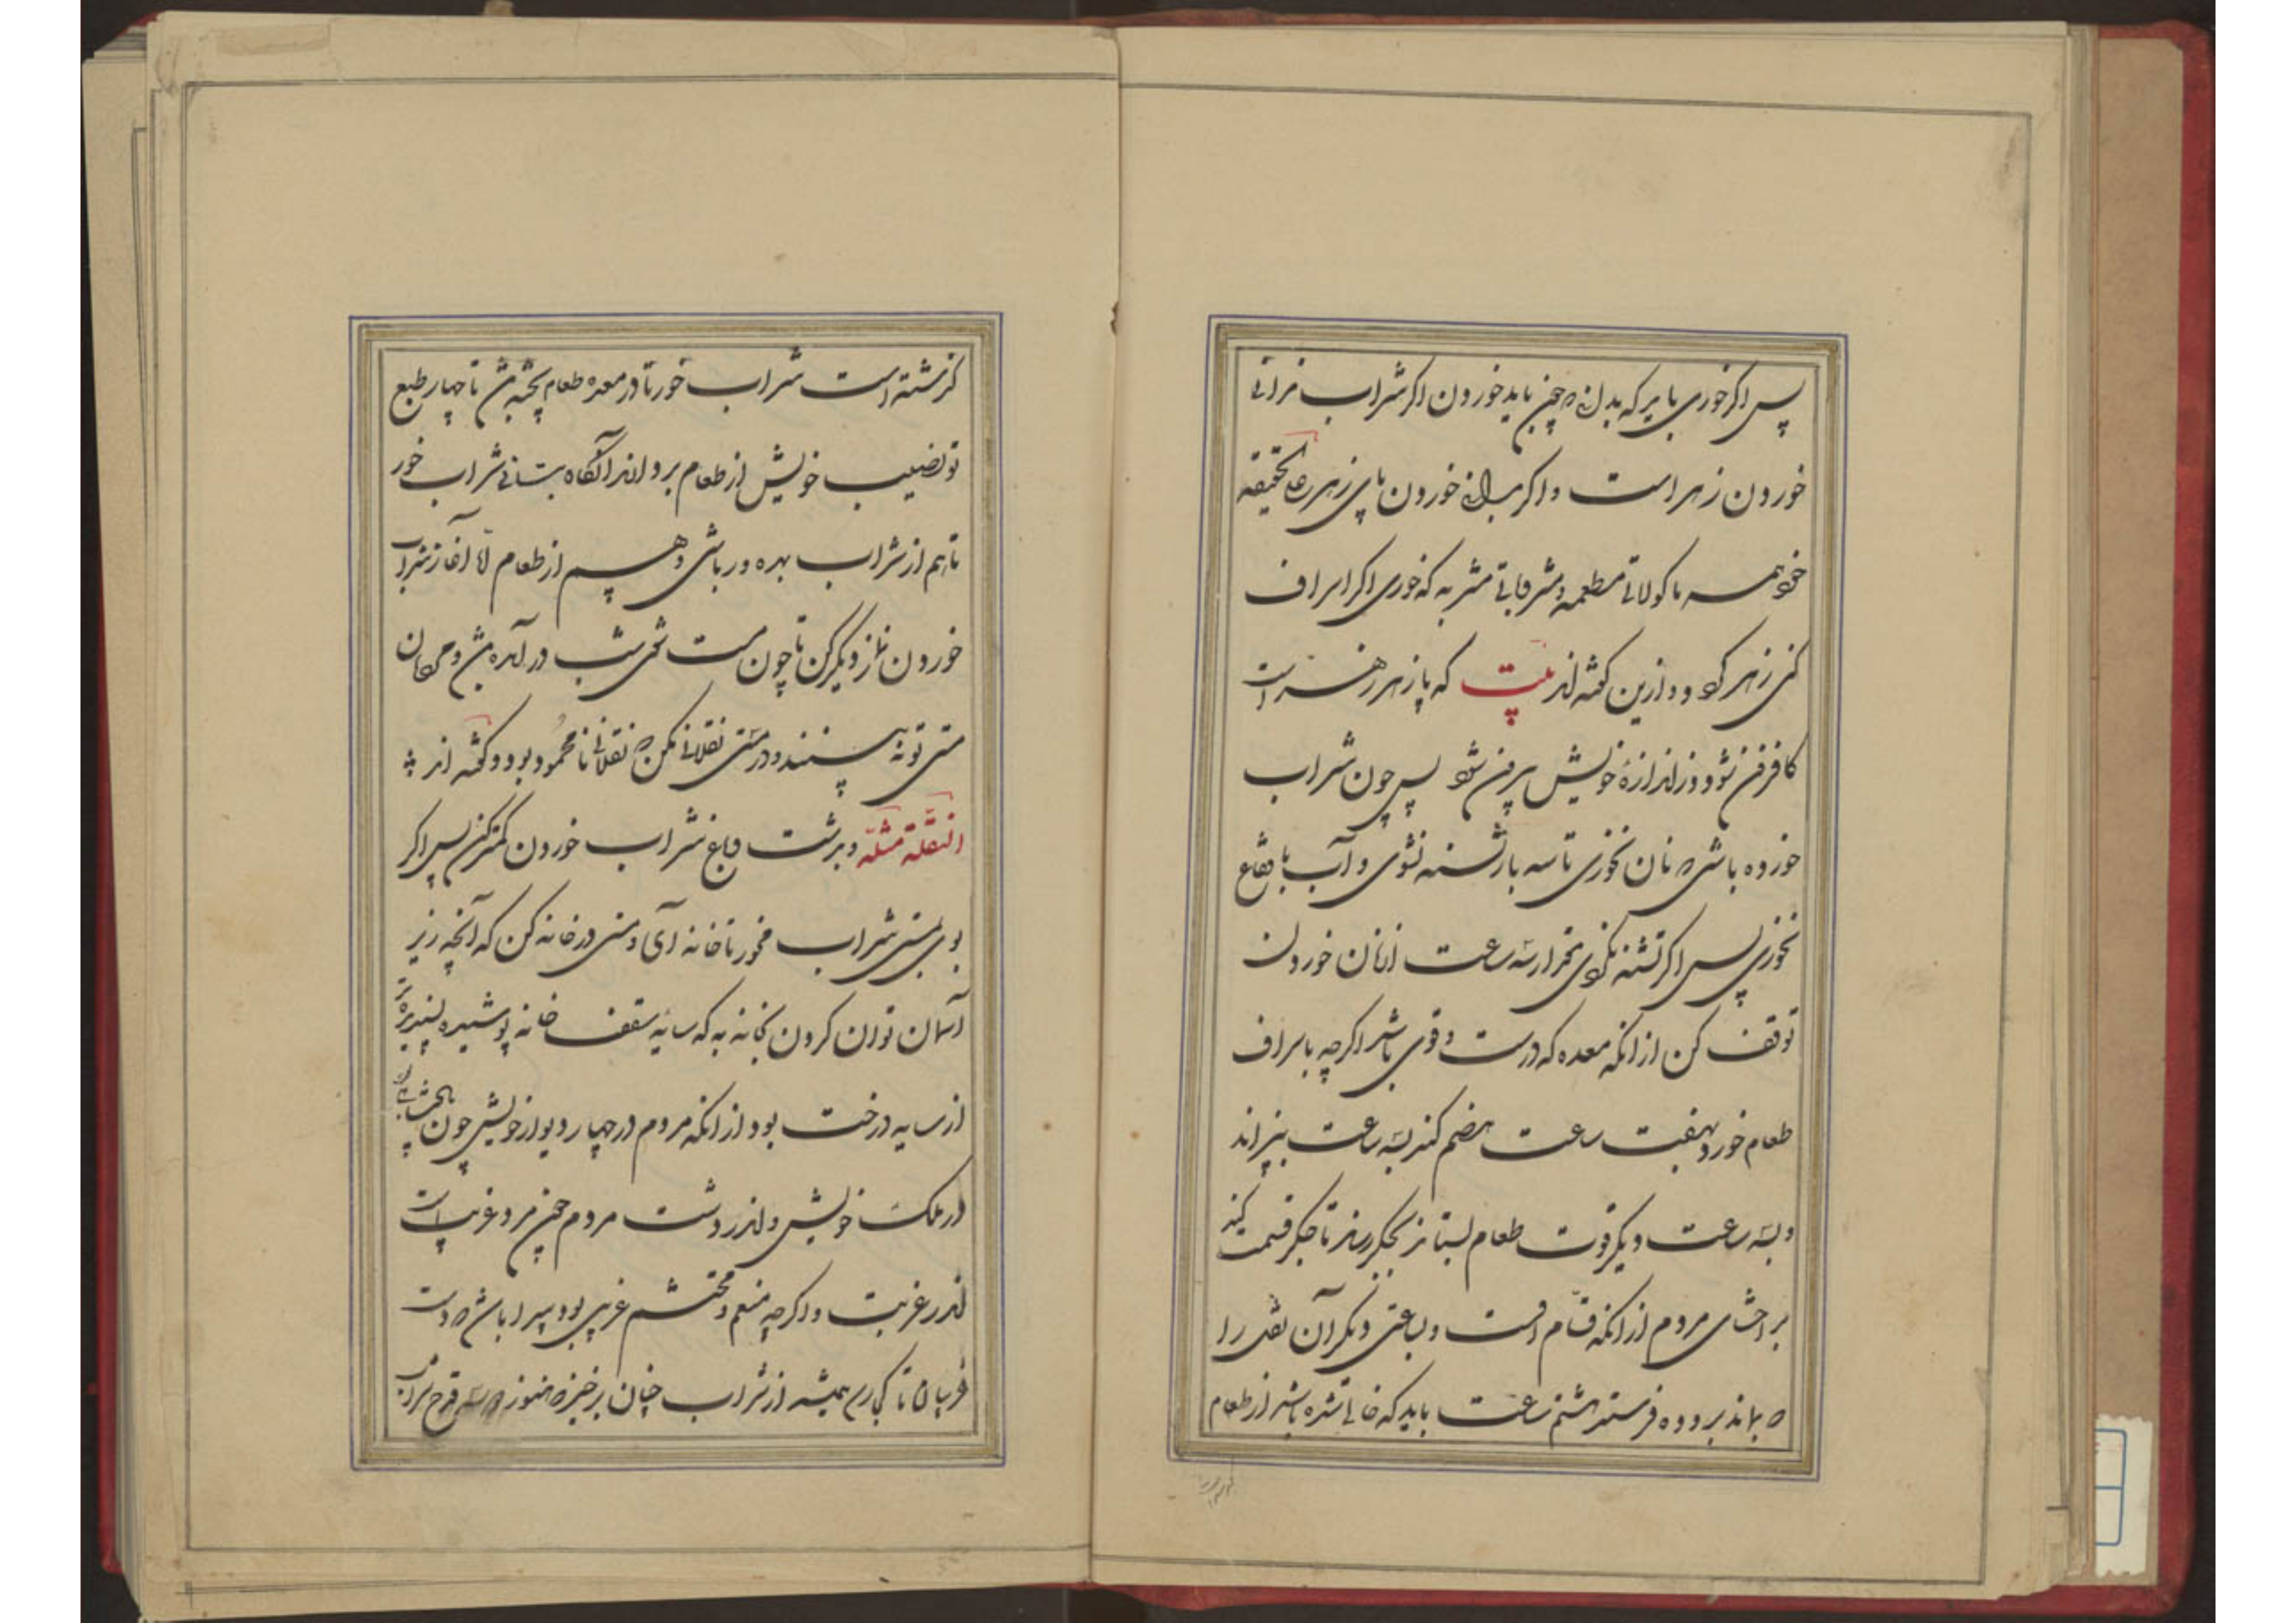 پس اگر خوری باید که بدانی که چون باید خوردن اگر شراب ندانی
خوردن زهر است و اگر بدانی خوردن پای زهر علی الحقیقه
خود همه ماکولاتی مطعمه و مشروباتی مشربه که خوری اگر اسراف
کنی زهر گردد و ازین گفته‌اند بیت که پازهر زهر است
کافزون شود وز اندازهٔ خویش بیرون شود پس چون شراب
خورده باشی که نان نخوری تا سه بار تشنه نشوی و آب یا فقاع
نخوری پس اگر تشنه نگردی بمقدار سه ساعت از نان خوردن
توقف کن از آنکه معده که درست و قوی باشد اگرچه باسراف
طعام خورد بهفت ساعت هضم کند بسه ساعت بپزاند
و بسه ساعت دیگر قوت طعام بستاند بجگر رساند تا جگر قسمت کند
بر احشای مردم از آنکه قسام اوست و بساعتی دیگر آن ثفل را
که بماند بروده فرستد هشتم ساعت باید که خالی شده باشد از طعام
گذشته است شراب خور تا در معده طعام پخته باشد تا چهار طبع
تو نصیب خویش از طعام بردارند آنگاه بستانی شراب خور
تا هم از شراب بهره ور باشی و هم از طعام اما آغاز شراب
خوردن نماز دیگر کن تا چون مست شوی شب در آمده باشد و مردمان
مستی تو نه بینند و در مستی نقلانی مکن که نقلانی نامحمود بود و گفته اند که
النقلة مثله و بدشت و باغ شراب خوردن کمتر کن پس اگر
بوی مستی شراب مخور تا خانه آی و مستی در خانه کن که آنچه زیر
آسمان توان کردن بخانه به که سایه سقف خانه پوشیده پسندیده تر
از سایه درخت بود از آنکه مردم در چهار دیوار خویش چون پادشاهی
در مملکت خویش و اندر دشت مردم چون مرد غریب است
اندر غربت و اگرچه منعم و محتشم غریبی بود پیدا باشد که دست
غریبان تا کی رسد همیشه از شراب چنان برخیز که هنوز دو سه قدح شراب